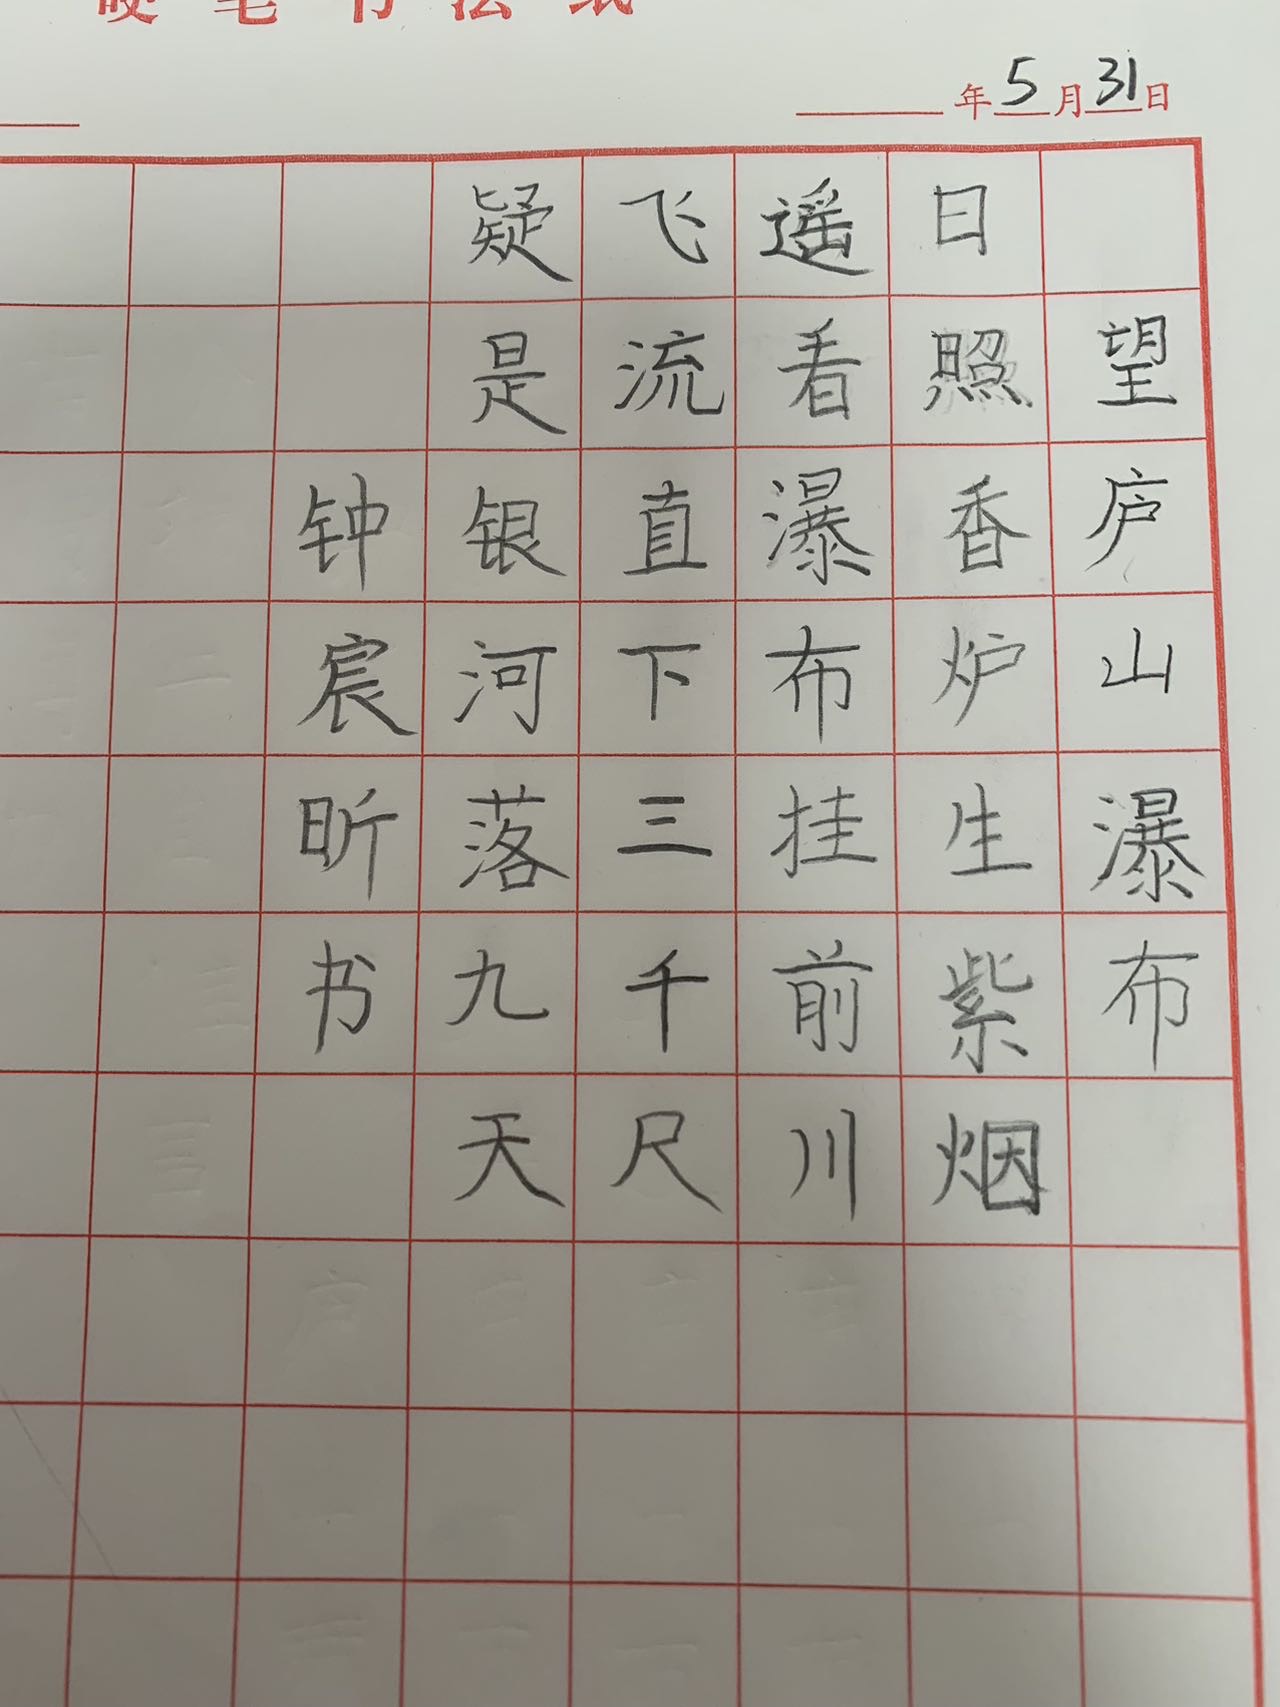 硬笔书法纸
年5月31日
望庐山瀑布
日照香炉生紫烟
遥看瀑布挂前川
飞流直下三千尺
疑是银河落九天
钟宸昕书